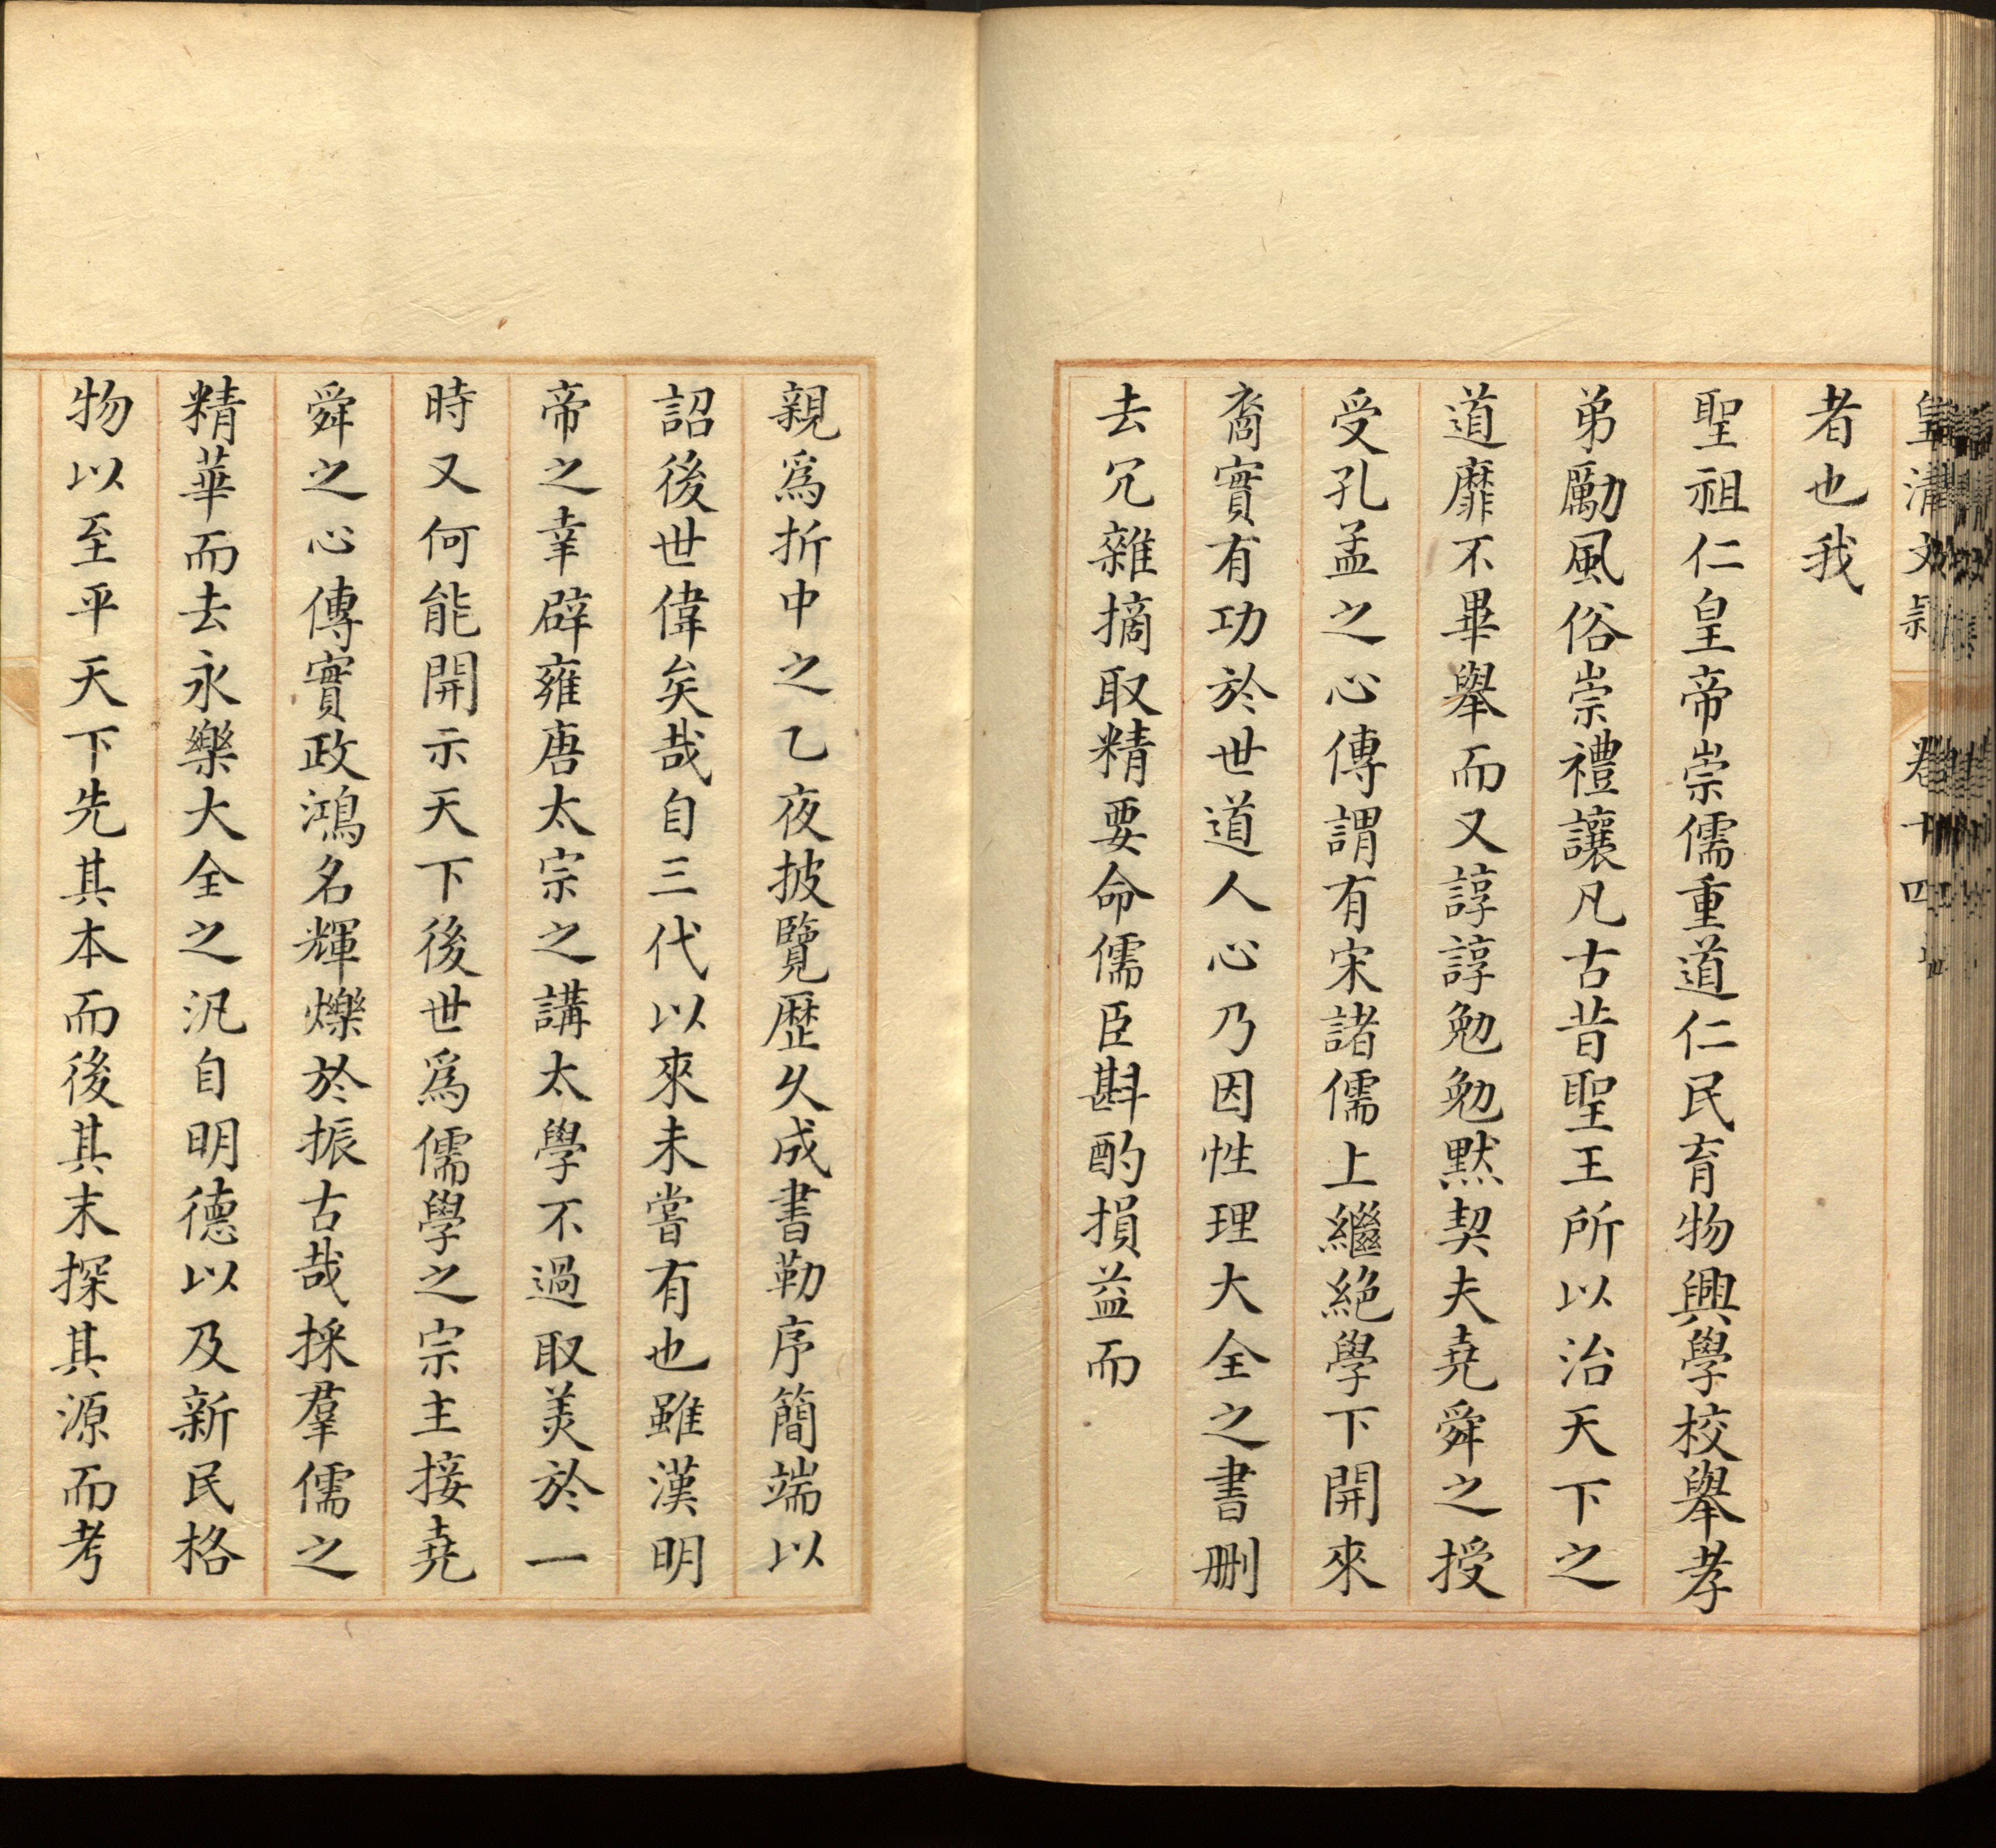 皇清文穎 卷十四
者也我
聖祖仁皇帝崇儒重道仁民育物興學校舉孝
弟勵風俗崇禮讓凡古昔聖王所以治天下之
道靡不畢舉而又諄諄勉勉默契夫堯舜之授
受孔孟之心傳謂有宋諸儒上繼絶學下開來
裔實有功於世道人心乃因性理大全之書删
去冗雜摘取精要命儒臣斟酌損益而
親爲折中之乙夜披覽歴久成書勒序簡端以
詔後世偉矣哉自三代以來未嘗有也雖漢明
帝之幸辟雍唐太宗之講太學不過取美於一
時又何能開示天下後世爲儒學之宗主接堯
舜之心傳實政鴻名輝爍於振古哉採羣儒之
精華而去永樂大全之汎自明德以及新民格
物以至平天下先其本而後其末探其源而考